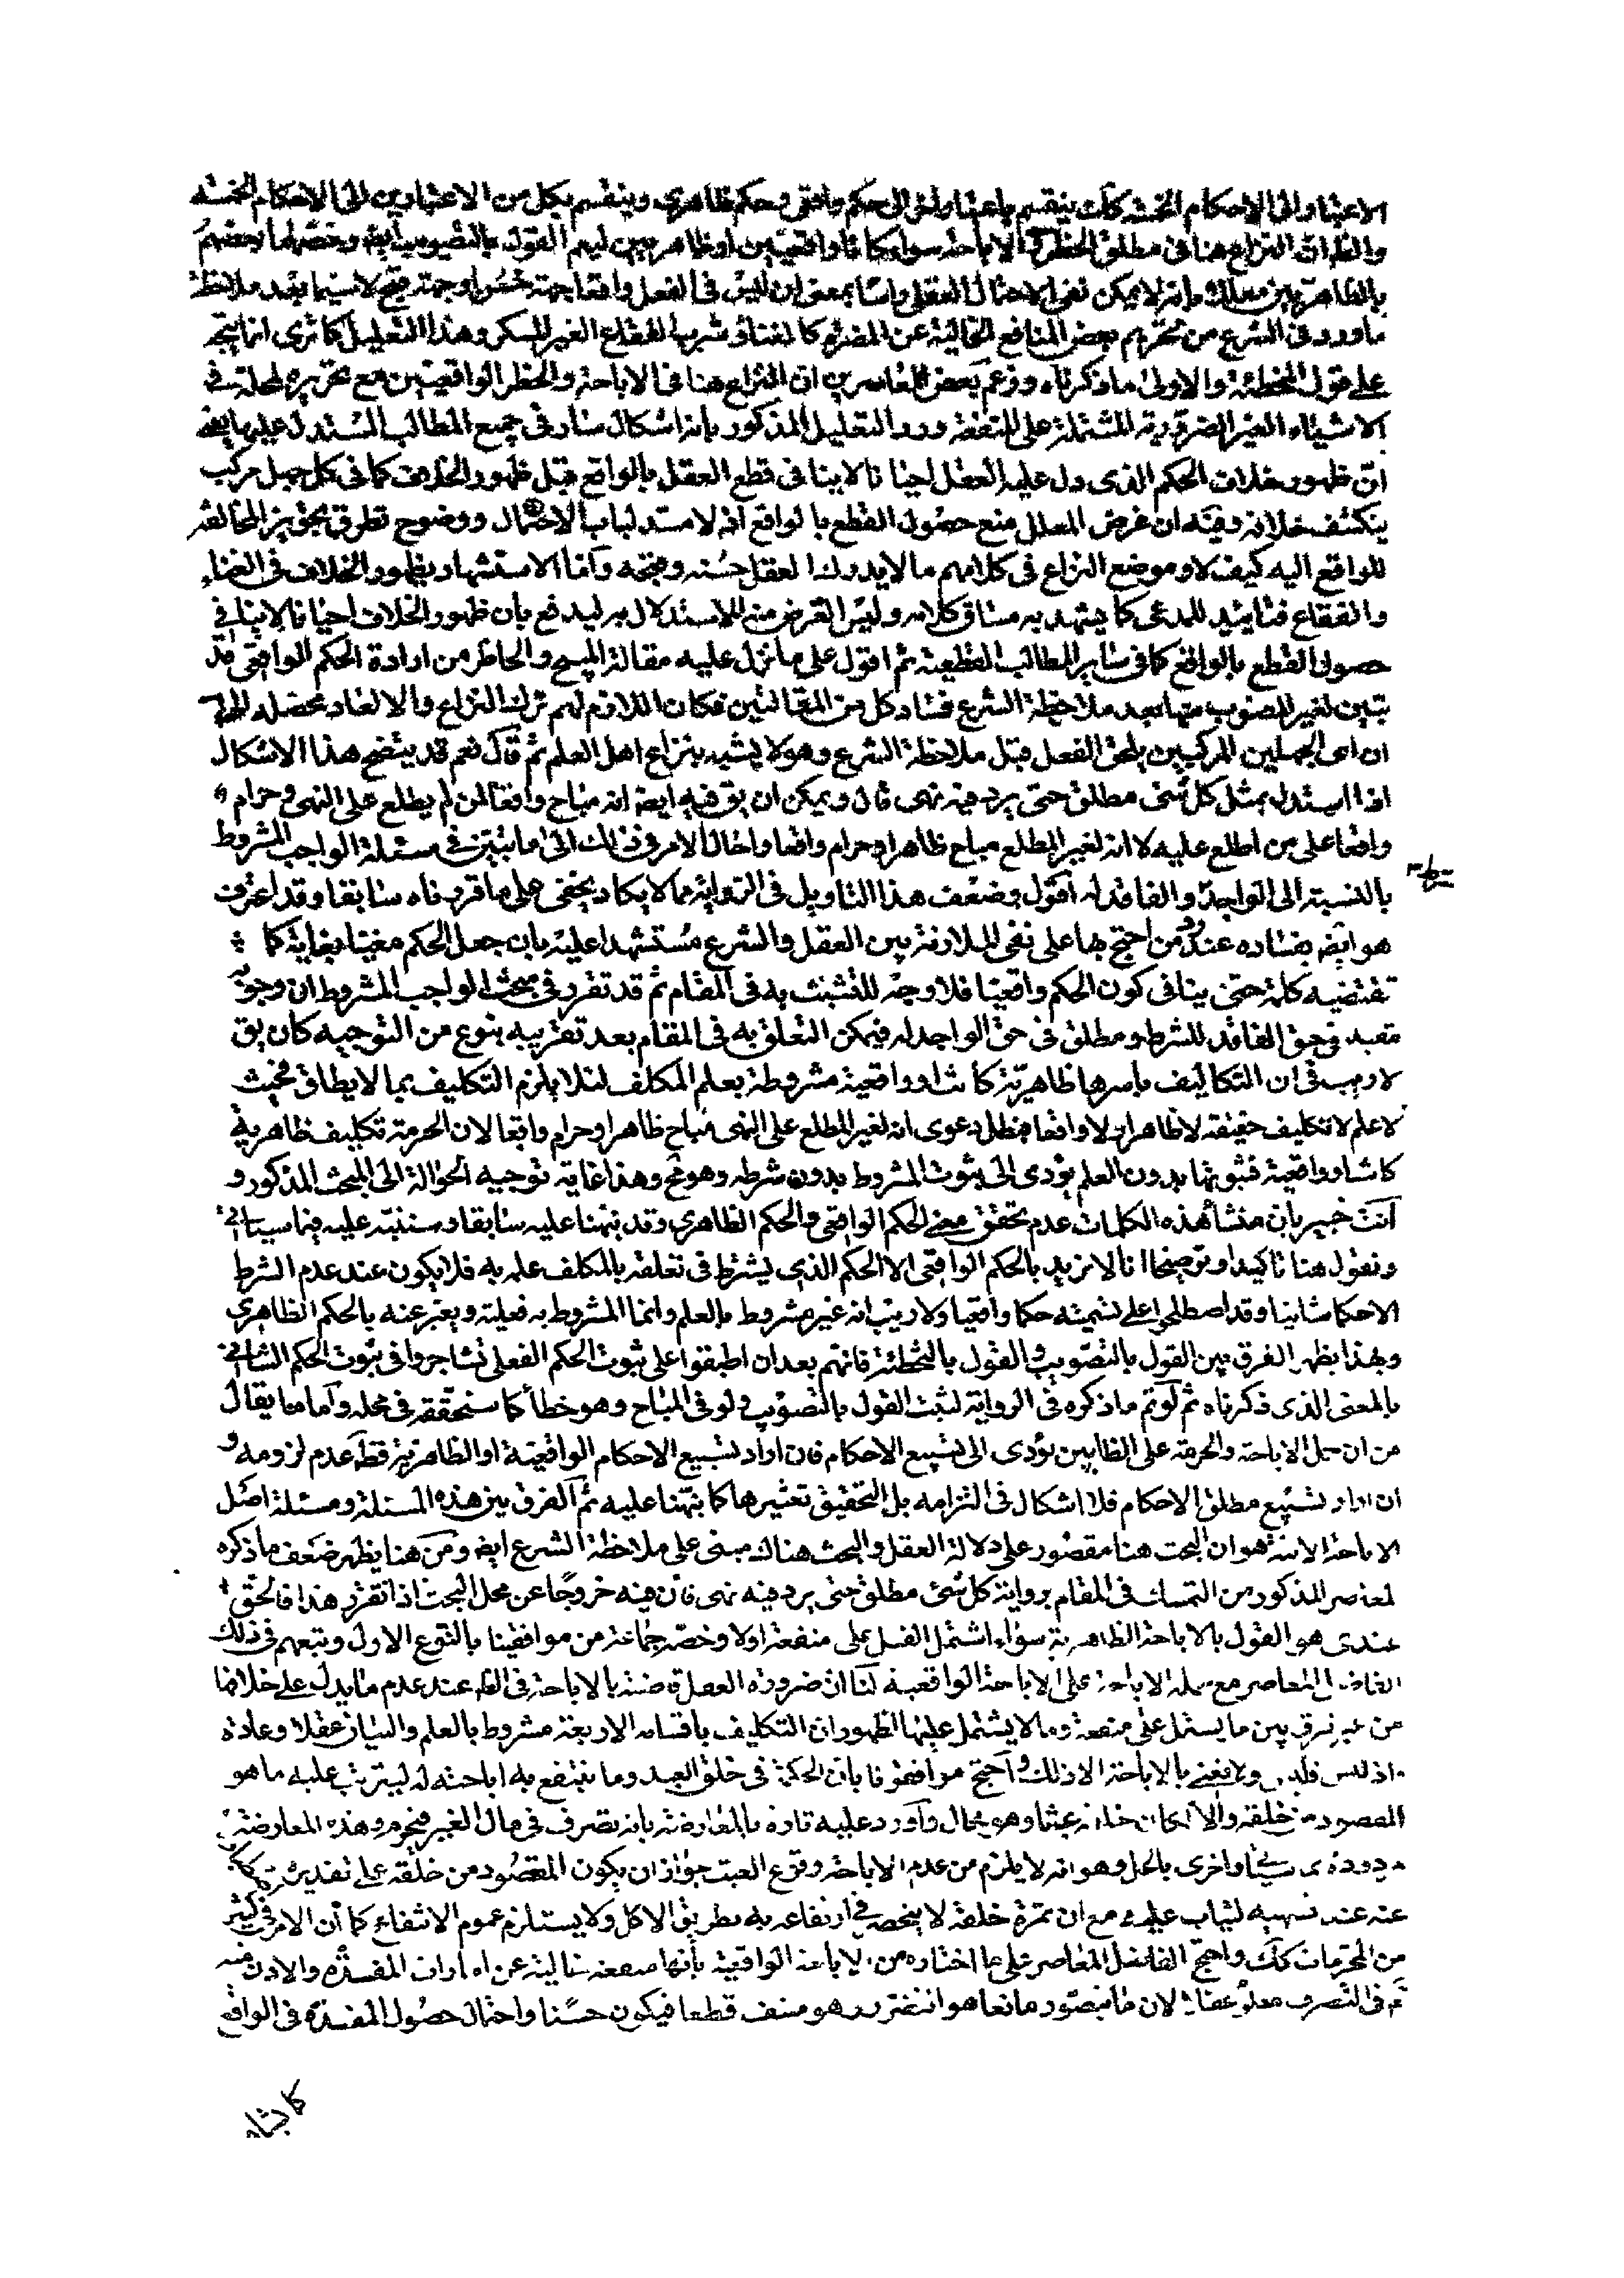 الاعتبار الى الاحكام الخمسة كك ينقسم باعتبار اخر الى حكم واقعى وحكم ظاهرى وينقسم بكل من الاعتبارين الى الاحكام الخمسة
والظ ان النزاع هنا فى مطلق الحظر والاباحة سواء كانا واقعيين او ظاهريين ليعم القول بالتصويب ايض وخصهما بعضهم
بالظاهريين معللا بانه لا يمكن نفى الاحتمال العقلى راسا بمعنى ان ليس فى الفعل واقعا جهة حسن او جهة قبح لا سيما بعد ملاحظة
ما ورد فى الشرع من تحريم بعض المنافع الخالية عن المضرة كالغناء وشرب الفقاع الغير المسكر وهذا التعليل كما ترى انما يتجه
على قول المخطئة والاولى ما ذكرناه وزعم بعض المعاصرين ان النزاع هنا فى الاباحة والحظر الواقعيين مع تحريره لمحله فى
الاشياء الغير الضرورية المشتملة على المنفعة ورد التعليل المذكور بانه اشكال سار فى جميع المطالب المستدل عليها يعنى
ان ظهور خلاف الحكم الذى دل عليه العقل احيانا لا ينافى قطع العقل بالواقع قبل ظهور الخلاف كما فى كل جهل مركب
ينكشف خلافه وفيه ان غرض المعلل منع حصول القطع بالواقع اذ لا مستد لباب الاحتمال ووضوح تطرق تجويز المخالفة
للواقع اليه كيف لا وموضع النزاع فى كلامهم ما لا يدرك العقل حسنه وقبحه وأما الاستشهاد بظهور الخلاف فى الغناء
والفقاع فتاييد للمدعى كما يشهد به مساق كلامه وليس الغرض منه الاستدلال به ليدفع بان ظهور الخلاف احيانا لا ينافى
حصول القطع بالواقع كما فى ساير المطالب القطعية ثم اقول على ما نزل عليه مقالة المبيح والحاظر من ارادة الحكم الواقعى قد
تبين لغير المصوب منهما بعد ملاحظة الشرع فساد كل من المقالتين فكان اللازم لهم ترك النزاع والا لعاد محصله الى
ان اى الجهلين المركبين يلحق الفعل قبل ملاحظة الشرع وهو لا يشبه بنزاع اهل العلم ثم قال نعم قد يتضح هذا الاشكال
اذا استدل بمثل كل شىء مطلق حتى يرد فيه نهى قال ويمكن ان يق فيه ايض انه مباح واقعا لمن لم يطلع على النهى وحرام
واقعا على من اطلع عليه لا انه لغير المطلع مباح ظاهرا وحرام واقعا واحال الامر فى ذلك الى ما تبين فى مسئلة الواجب المشروط
بالنسبة الى الواجد والفاقد له اقول وضعف هذا التاويل فى الرواية مما لا يكاد يخفى على ما قررناه سابقا وقد اعترف
هو ايض بفساده عند رد من احتج بها على نفى الملازمة بين العقل والشرع مستشهدا عليه بان جعل الحكم مغيا بغاية كما
تقتضيه كلمة حتى ينافى كون الحكم واقعيا فلا وجه للتشبث به فى المقام ثم قد تقرر فى مبحث الواجب المشروط ان وجوبه
مقيد فى حق الفاقد للشرط ومطلق فى حق الواجد له فيمكن التعلق به فى المقام بعد تقريبه بنوع من التوجيه كان يق
لا ريب فى ان التكاليف باسرها ظاهرية كانت او واقعية مشروطة بعلم المكلف لئلا يلزم التكليف بما لا يطاق فحيث
لا علم لا تكليف حقيقة لا ظاهرا ولا واقعا فبطل دعوى انه لغير المطلع على النهى مباح ظاهرا وحرام واقعا لان الحرمة تكليف ظاهرية
كانت او واقعية فثبوتها بدون العلم يؤدى الى ثبوت المشروط بدون شرطه وهو مح وهذا غاية توجيه الحوالة الى المبحث المذكور و
أنت خبير بان منشأ هذه الكلمات عدم تحقق معنى الحكم الواقعى والحكم الظاهرى وقد نبهنا عليه سابقا وسننبه عليه فيما سياتى
ونقول هنا تاكيدا وتوضيحا انا لا نريد بالحكم الواقعى الا الحكم الذى يشترط فى تعلقه بالمكلف علمه به فلا يكون عند عدم الشرط
الا حكما شانيا وقد اصطلحوا على تسميته حكما واقعيا ولا ريب انه غير مشروط بالعلم وانما المشروط به فعليته ويعبر عنه بالحكم الظاهرى
وبهذا يظهر الفرق بين القول بالتصويب والقول بالتخطئة فانهم بعد ان اطبقوا على ثبوت الحكم الفعلى تشاجروا فى ثبوت الحكم الشانى
بالمعنى الذى ذكرناه ثم لو تم ما ذكره فى الرواية لثبت القول بالتصويب ولو فى المباح وهو خطأ كما سنحققه فى محله وأما ما يقال
من ان حمل الاباحة والحرمة على الظاهريين يؤدى الى تسبيع الاحكام فان اراد تسبيع الاحكام الواقعية او الظاهرية فظ عدم لزومه و
ان اراد تسبيع مطلق الاحكام فلا اشكال فى التزامه بل التحقيق تعشيرها كما نبهنا عليه ثم الفرق بين هذه المسئلة ومسئلة اصل
الاباحة الاتية هو ان البحث هنا مقصور على دلالة العقل والبحث هناك مبنى على ملاحظة الشرع ايض ومن هنا يظهر ضعف ما ذكره
المعاصر المذكور من التمسك فى المقام برواية كل شئ مطلق حتى يرد فيه نهى فان فيه خروجا عن محل البحث اذا تقرر هذا فالحق
عندى هو القول بالاباحة الظاهرية سواء اشتمل الفعل على منفعة اولا وخصه جماعة من موافقينا بالنوع الاول وتبعهم فى ذلك
الفاضل المعاصر مع حمله الاباحة على الاباحة الواقعية لنا ان ضرورة العقل قاضية بالاباحة فى الظ عند عدم ما يدل على خلافها
من غير فرق بين ما يشتمل على منفعة وما لا يشتمل عليها لظهور ان التكليف باقسامه الاربعة مشروط بالعلم والبيان عقلا وعادة
واذ ليس فليس ولا نعنى بالاباحة الا ذلك واحتج موافقونا بان الحكمة فى خلق العبد وما ينتفع به اباحته له ليترتب عليه ما هو
المقصود من خلقه والا لكان خلقه عبثا وهو محال وأورد عليه تارة بالمعارضة بانه تصرف فى مال الغير فيحرم وهذه المعارضة
واخرى بالحل وهو انه لا يلزم من عدم الاباحة وقوع العبث جواز ان يكون المقصود من خلقه على تقدير
عنه عند ليثاب عليه مع ان ثمرة خلقه لا ينحصر فى انتفاعه به بطريق الاكل ولا يستلزم عموم الانتفاع كما أن الامر فى كثير
من المحرمات كك واحتج الفاضل المعاصر على ما اختاره من الاباحة الواقعية بأنها منفعة خالية عن امارات المفسدة والاذن
فى التصرف معلوم عقلا لان ما يتصور مانعا هو التضرر وهو منتف قطعا فيكون حسنا واحتمال حصول المفسدة فى الواقع